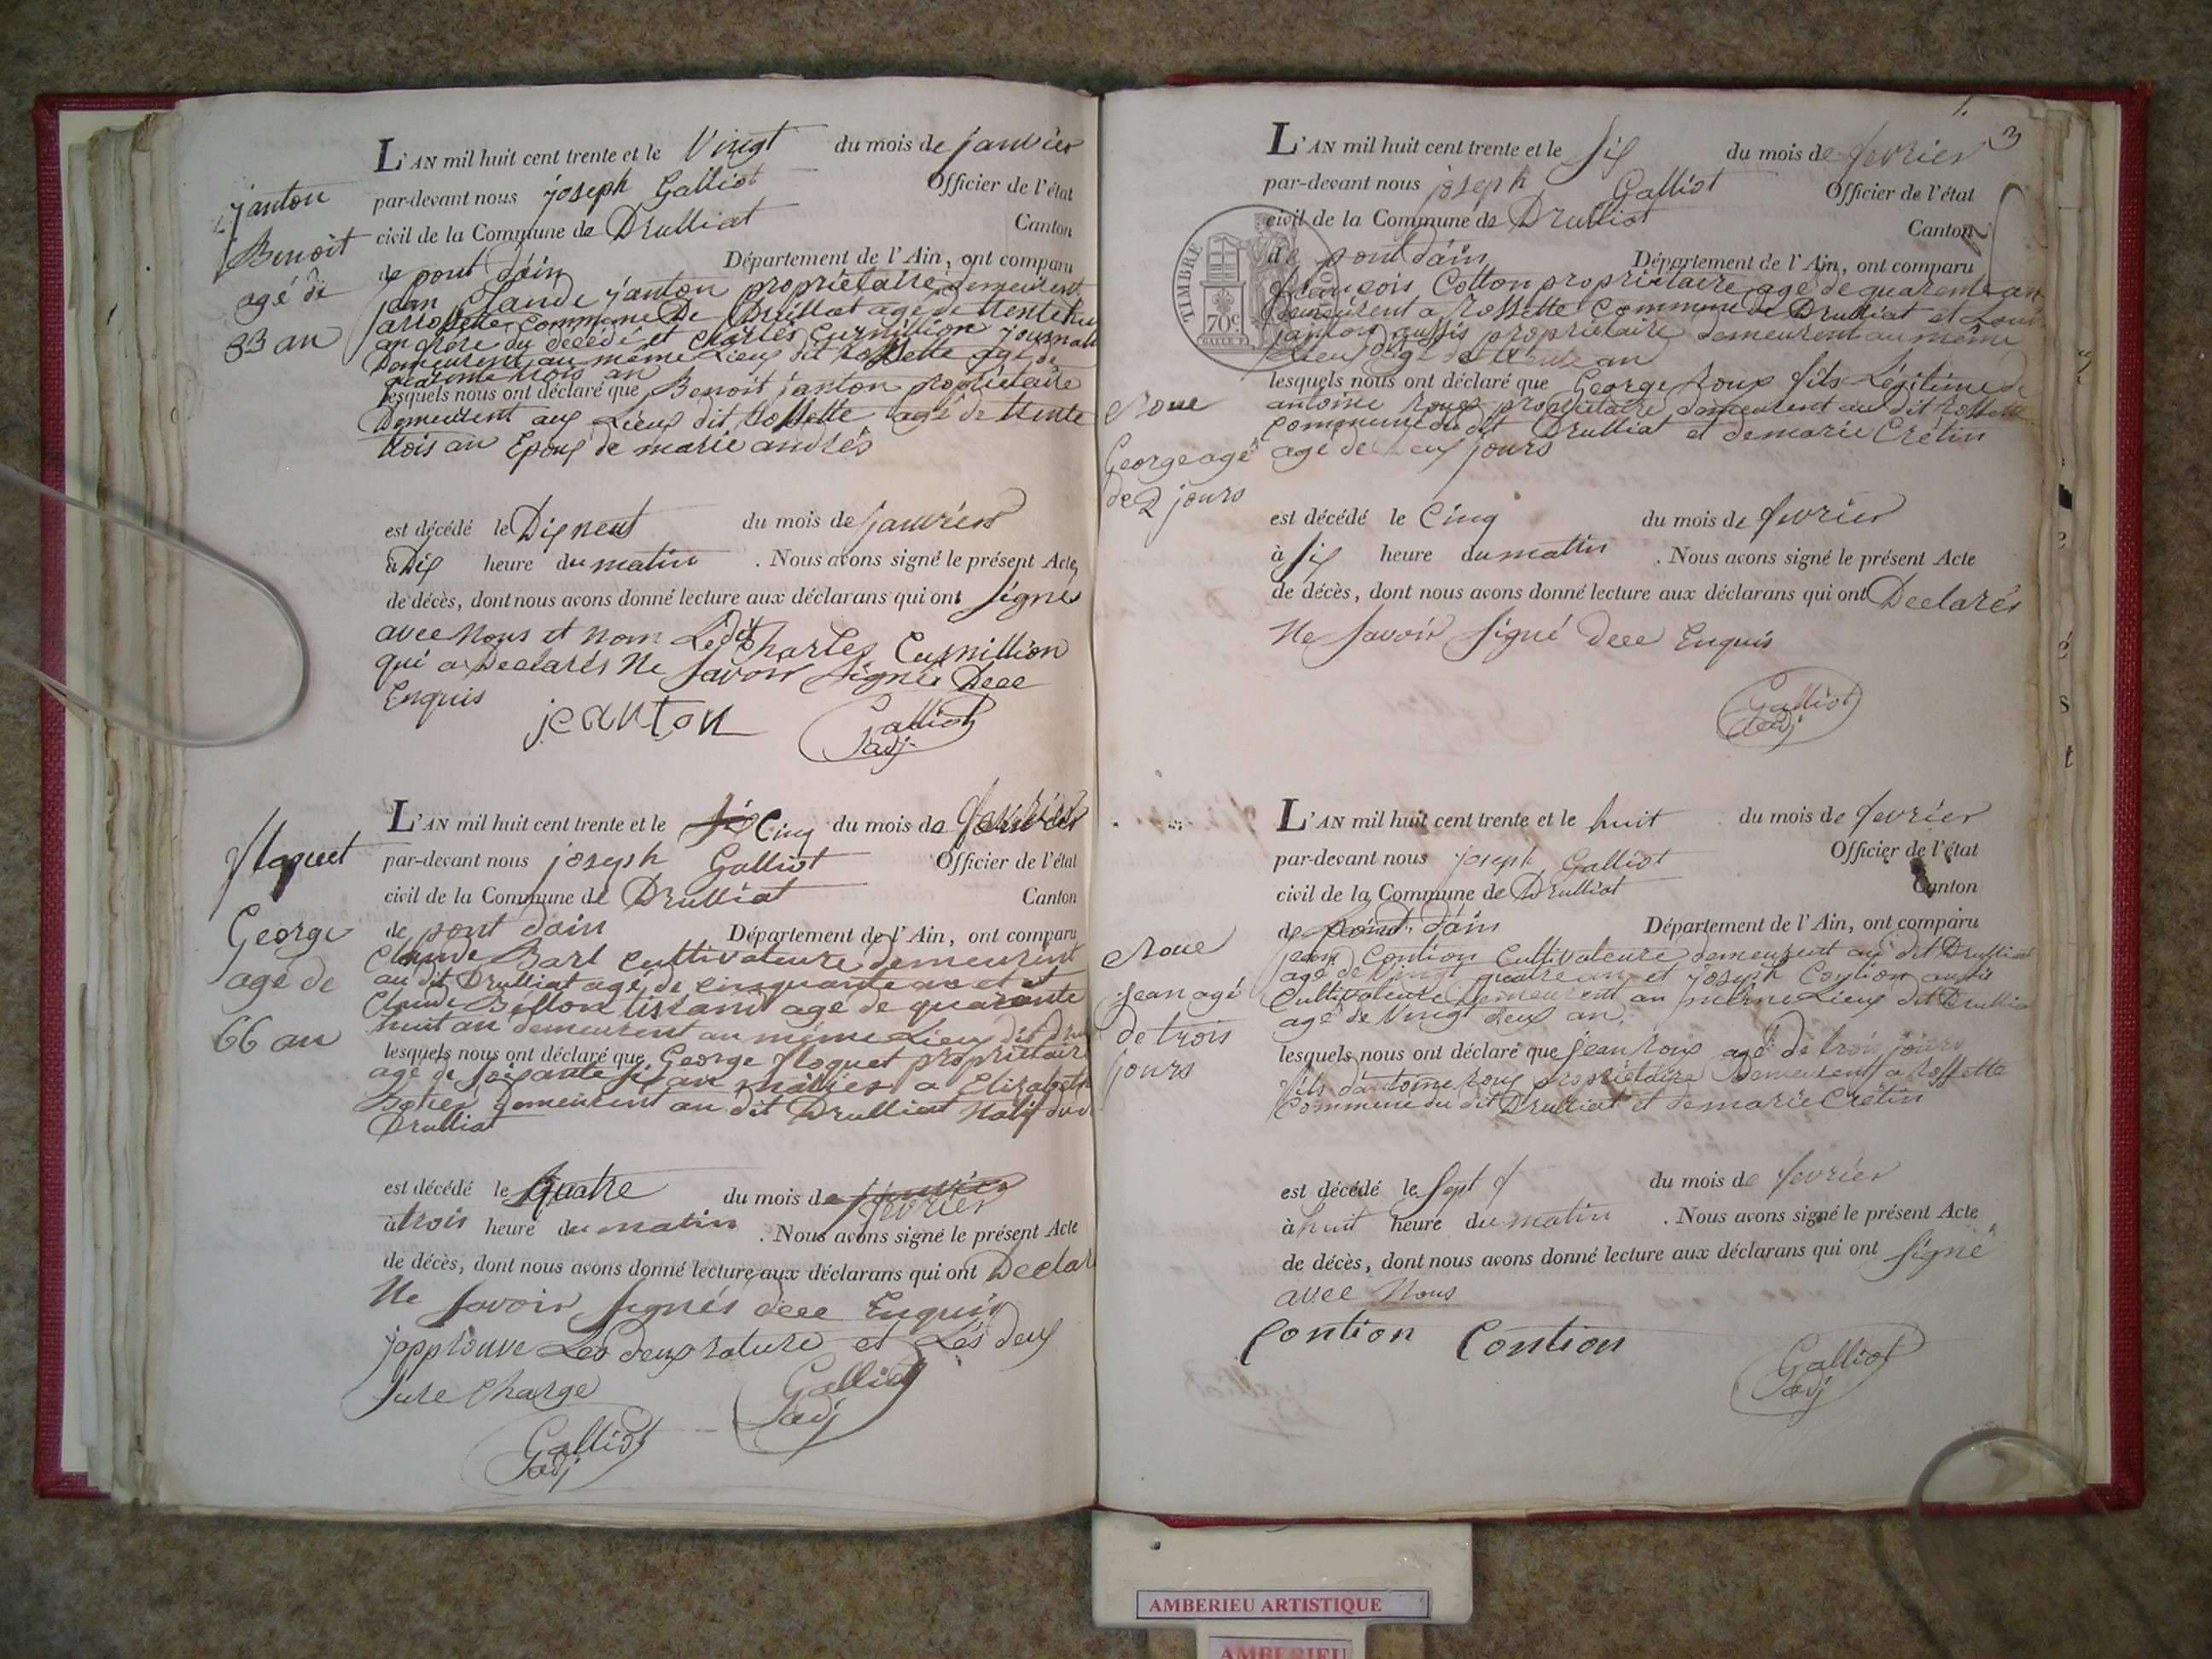 janton
Benoit
agé de
33 an
L'AN mil huit cent trente et le Vingt du mois de janvier
par-devant nous joseph Galliot Officier de l'état
civil de la Commune de Drulliat Canton
de pont dain Département de l'Ain, ont comparu
jean Claude janton propriétaire demeurent
a rossette commune De Drulliat age de trente hui
an frere du décédé et charles Curnillion journali
Demeurent au même Lieux dit rossette age de
quarente trois an
lesquels nous ont déclaré que Benoit janton propriétaire
Demeurent aux Lieux dit rossette agé de trente
trois an Epoux de marie andrés
est décédé le Dix neuf du mois de janvier
à Dix heure du matin. Nous avons signé le présent Acte
de décès, dont nous avons donné lecture aux déclarans qui ont signés
avec nous et nom Ledit Charles Curnillion
qui a Declarés Ne savoir signés Dece
Enquis
jeanton
Galliot
adj
flaquet
George
agé de
66 an
L'AN mil huit cent trente et le Cinq du mois de fevrier
par-devant nous joseph Galliot Officier de l'état
civil de la Commune de Drulliat Canton
de pont dain Département de l'Ain, ont comparu
Claude Barl cultivateure demeurent
au dit Drulliat agé de cinquante an et
Claude Bellon tisrand agé de quarante
huit an demeurent au même Lieux dit Dru
lesquels nous ont déclaré que George floquet propriétaire
agé de soixante six an mariés a Elizabeth
demeurent au dit Drulliat Natif dud
Drulliat
est décédé le Quatre du mois de janvier
fevrier
à trois heure du matin. Nous avons signé le présent Acte
de décès, dont nous avons donné lecture aux déclarans qui ont Declar
Ne savoir signés dece Enquis
japprouve Les deux rature et Les deux
sure Charge
Galliot
adj
Galliot
adj
3
L'AN mil huit cent trente et le six du mois de fevrier
par-devant nous joseph Galliot Officier de l'état
civil de la Commune de Drulliat Canton
de pont dain Département de l'Ain, ont comparu
TIMBRE
70c
françois Cotton propriétaire agé de quarente an
demeurent a rossette Commune de Drulliat et Loui
janton aussis propriétaire demeurent au même
Lieux agé de trente an
Roue
George agé
de 2 jours
lesquels nous ont déclaré que George roux fils Légitime de
antoine roux propriétaire demeurent au dit rossette
commune du dit Drulliat et de marie Crétin
agé de deux jours
est décédé le Cinq du mois de fevrier
à six heure du mattin. Nous avons signé le présent Acte
de décès, dont nous avons donné lecture aux déclarans qui ont Declarés
Ne savoir signé dece Enquis
Galliot
adj
L'AN mil huit cent trente et le huit du mois de fevrier
par-devant nous joseph Galliot Officier de l'état
civil de la Commune de Drulliat Canton
de pont dain Département de l'Ain, ont comparu
Roue
jean agé
de trois
jours
jean Contion Cultivateure demeurent au dit Drulliat
agé de Vingt quatre an et joseph Contion aussis
Cultivateure Demeurent au même Lieux dit Drullia
agé de Vingt deux an
lesquels nous ont déclaré que jean roux agé de trois jours
fils dantoine roux propriétaire Demeurent a rossette
Commune du dit Drulliat et de marie Crétin
est décédé le sept du mois de fevrier
à huit heure du matin. Nous avons signé le présent Acte
de décès, dont nous avons donné lecture aux déclarans qui ont signé
avec Nous
Contion Contion
Galliot
adj
AMBERIEU ARTISTIQUE
AMBERIEU